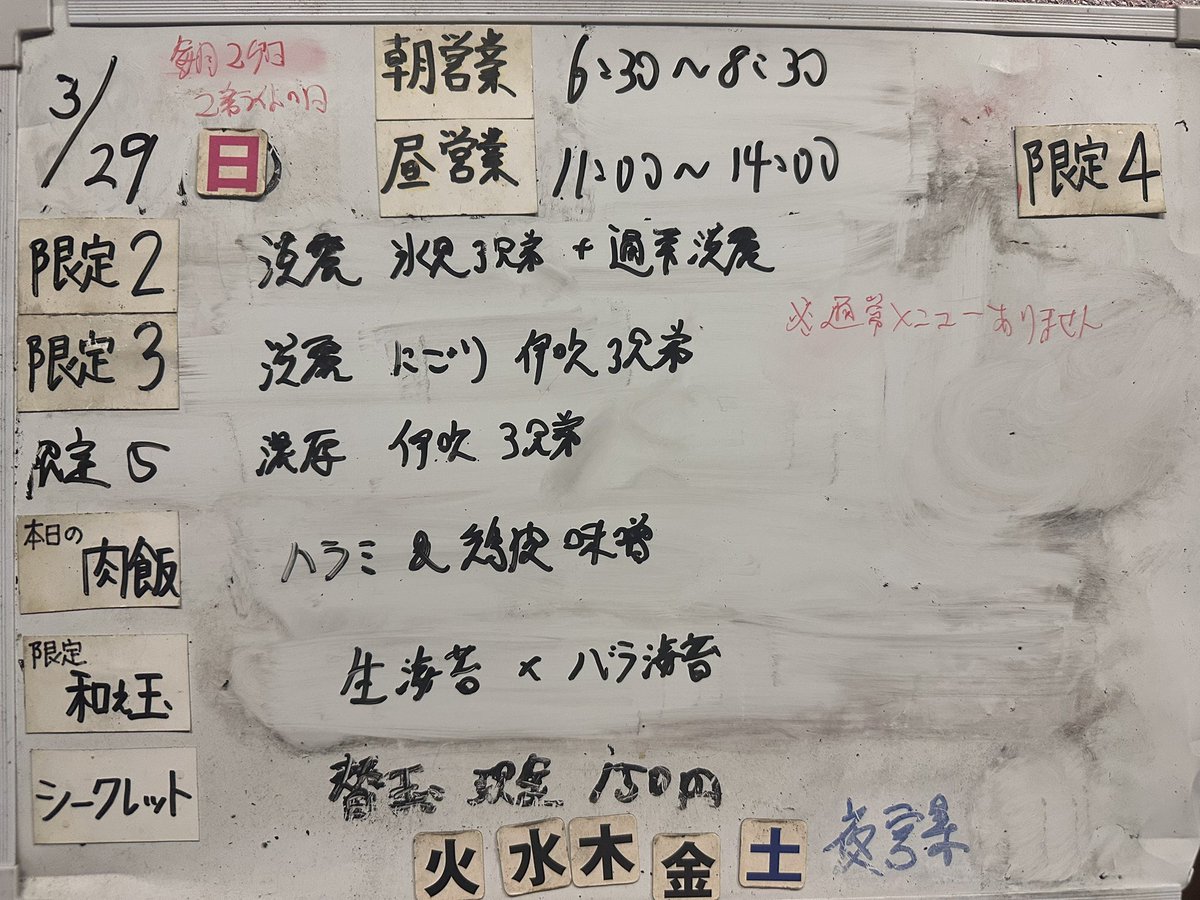 3/29 日
毎月29日
朝営業 6:30〜8:30
昼営業 11:00〜14:00
限定4
限定2 淡麗 氷見3兄弟 + 通常淡麗
※通常メニューありません
限定3 淡麗 にごり 伊吹3兄弟
限定5 濃厚 伊吹 3兄弟
本日の肉飯 ハラミ & 鶏皮味噌
限定和え玉 生海苔 × バラ海苔
シークレット
替玉 現金 150円
火 水 木 金 土 夜営業